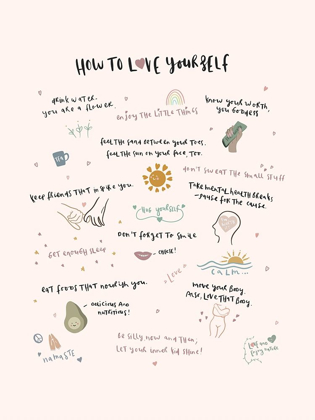 HOW TO LOVE YOURSELF
drink water.
you are a flower.
enjoy the little things
know your worth,
you goddess
feel the sand between your toes.
feel the sun on your face, too.
don't sweat the small stuff
keep friends that inspire you.
Take mental health breaks
- pause for the cause.
hug yourself
don't forget to smile
- cheese!
get enough sleep
CALM...
"LOVE"
eat foods that nourish you.
- delicious and
nutritious!
move your body.
Also, love that body.
namaste
be silly now and then,
let your inner kid shine!